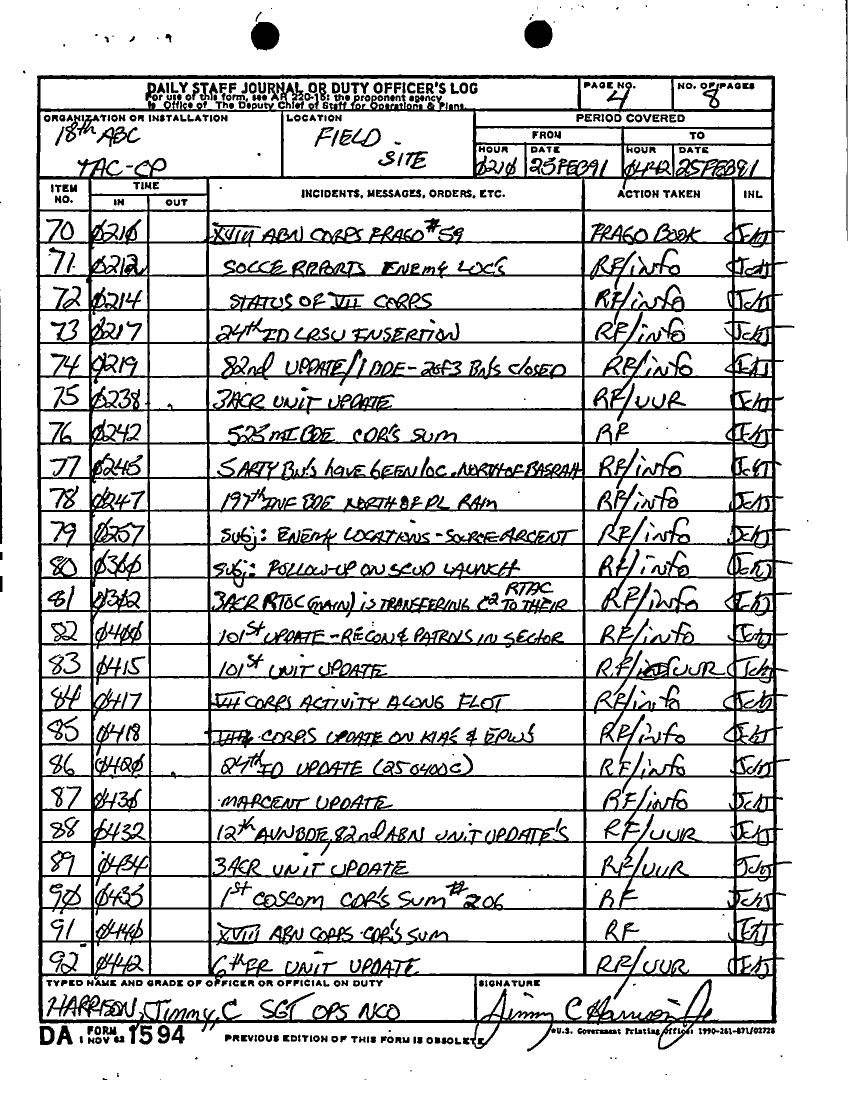 DAILY STAFF JOURNAL OR DUTY OFFICER'S LOG
For use of this form, see AR 220-15; the proponent agency
is Office of The Deputy Chief of Staff for Operations & Plans.
PAGE NO.
4
NO. OF PAGES
8
ORGANIZATION OR INSTALLATION
18th ABC
TAC-CP
LOCATION
FIELD
SITE
PERIOD COVERED
FROM
TO
HOUR
0210
DATE
25FEB91
HOUR
0442
DATE
25FEB91
ITEM NO.
TIME
IN
OUT
INCIDENTS, MESSAGES, ORDERS, ETC.
ACTION TAKEN
INL
70 0210 XVIII ABN CORPS FRAGO #59 FRAGO BOOK
71 0212 SOCCE REPORTS ENEMY LOC'S RF/info
72 0214 STATUS OF VII CORPS RF/info
73 0217 24th ID LRSU ENSERTION RF/info
74 0219 82nd UPDATE/1 BDE - 2 OF 3 BN'S CLOSED RF/info
75 0238 3ACR UNIT UPDATE RF/UUR
76 0242 525 MI BDE CDR'S SUM RF
77 0245 5 ARTY BN'S HAVE BEEN LOC. NORTH OF BASRAH RF/info
78 0247 197th INF BDE NORTH OF PL RAM RF/info
79 0257 SUBJ: ENEMY LOCATIONS - SOURCE ARCENT RF/info
80 0300 SUBJ: FOLLOW-UP ON SCUD LAUNCH RF/info
81 0302 3ACR RTOC (MAIN) IS TRANSFERING C2 TO THEIR RTAC RF/info
82 0400 101st UPDATE - RECON & PATROLS IN SECTOR RF/info
83 0415 101st UNIT UPDATE RF/UUR
84 0417 VII CORPS ACTIVITY ALONG FLOT RF/info
85 0418 CORPS UPDATE ON KIAS & EPWS RF/info
86 0420 24th ID UPDATE (250400C) RF/info
87 0430 MARCENT UPDATE RF/info
88 0432 12th AVN BDE, 82nd ABN UNIT UPDATE'S RF/UUR
89 0434 3ACR UNIT UPDATE RF/UUR
90 0435 1st COSCOM CDR'S SUM #206 RF
91 0440 XVIII ABN CORPS CDR'S SUM RF
92 0442 6th FR UNIT UPDATE RF/UUR
TYPED NAME AND GRADE OF OFFICER OR OFFICIAL ON DUTY
HARRISON, Jimmy, C SGT OPS NCO
SIGNATURE
Jimmy C Harrison Jr
DA FORM 1 NOV 62 1594
PREVIOUS EDITION OF THIS FORM IS OBSOLETE
*U.S. Government Printing Office: 1990-261-871/02728